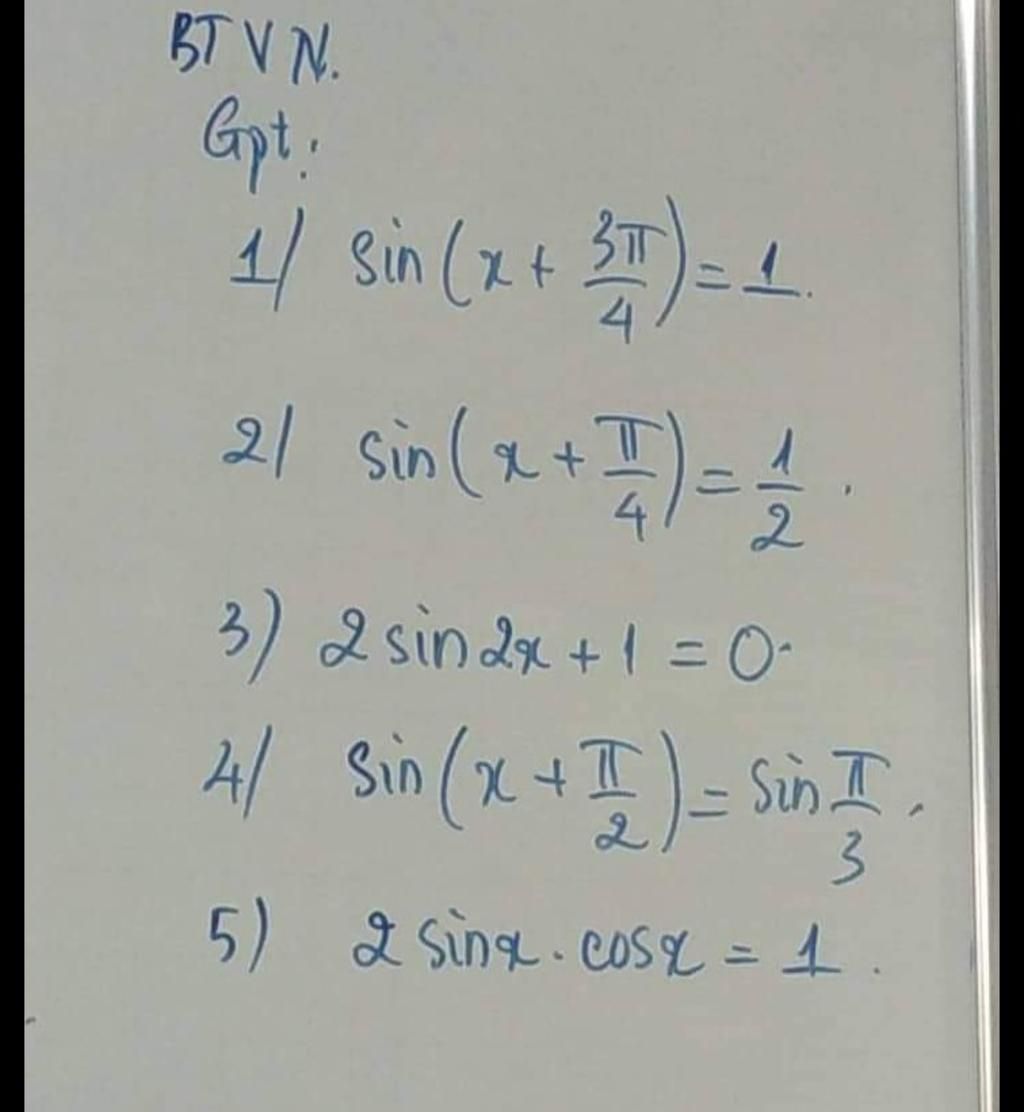 BTVN.
Gpt:
1/ sin(x + 3π/4) = 1.
2/ sin(x + π/4) = 1/2.
3) 2 sin2x + 1 = 0.
4/ sin(x + π/2) = sin π/3.
5) 2 sinx . cosx = 1.